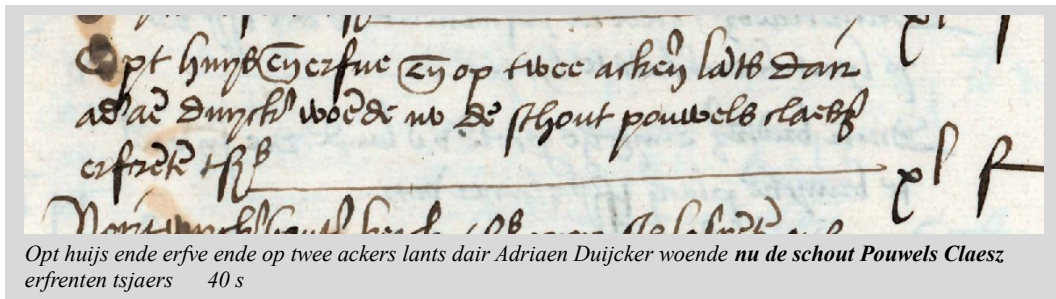 Opt huijs en erfve en op twee acken lats dair
ad'ae duijck' woede nu de schout pouwels claesz
erfrete tsjs xl s
Opt huijs ende erfve ende op twee ackers lants dair Adriaen Duijcker woende nu de schout Pouwels Claesz
erfrenten tsjaers 40 s